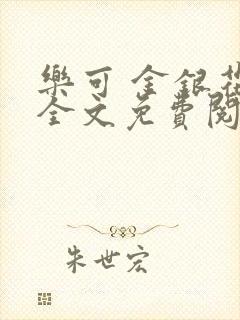 樂可 金銀花
全文免費閱
朱世宏